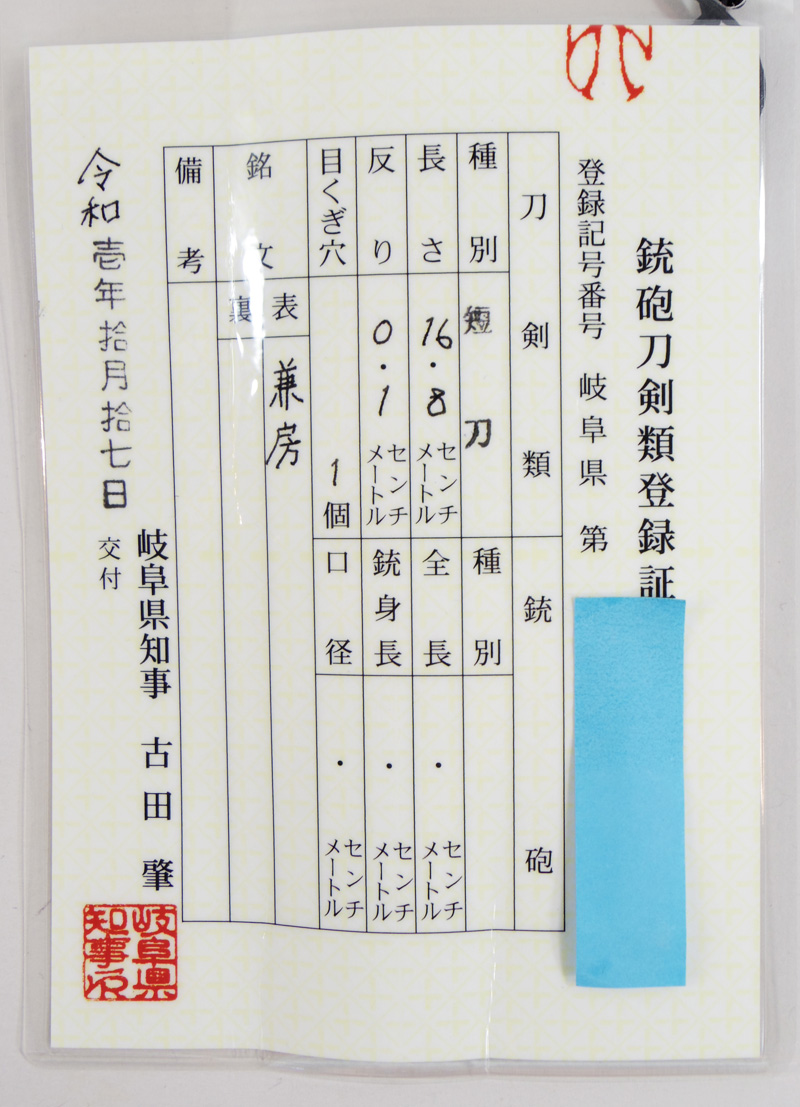 銃砲刀剣類登録証
登録記号番号 岐阜県 第
刀剣類
銃砲
種別
短刀
種別
長さ
16.8
センチメートル
全長
・
センチメートル
反り
0.1
センチメートル
銃身長
・
センチメートル
目くぎ穴
1個
口径
・
センチメートル
銘文
表
兼房
裏
備考
令和壱年拾月拾七日
交付
岐阜県知事 古田 肇
岐阜県
知事之印